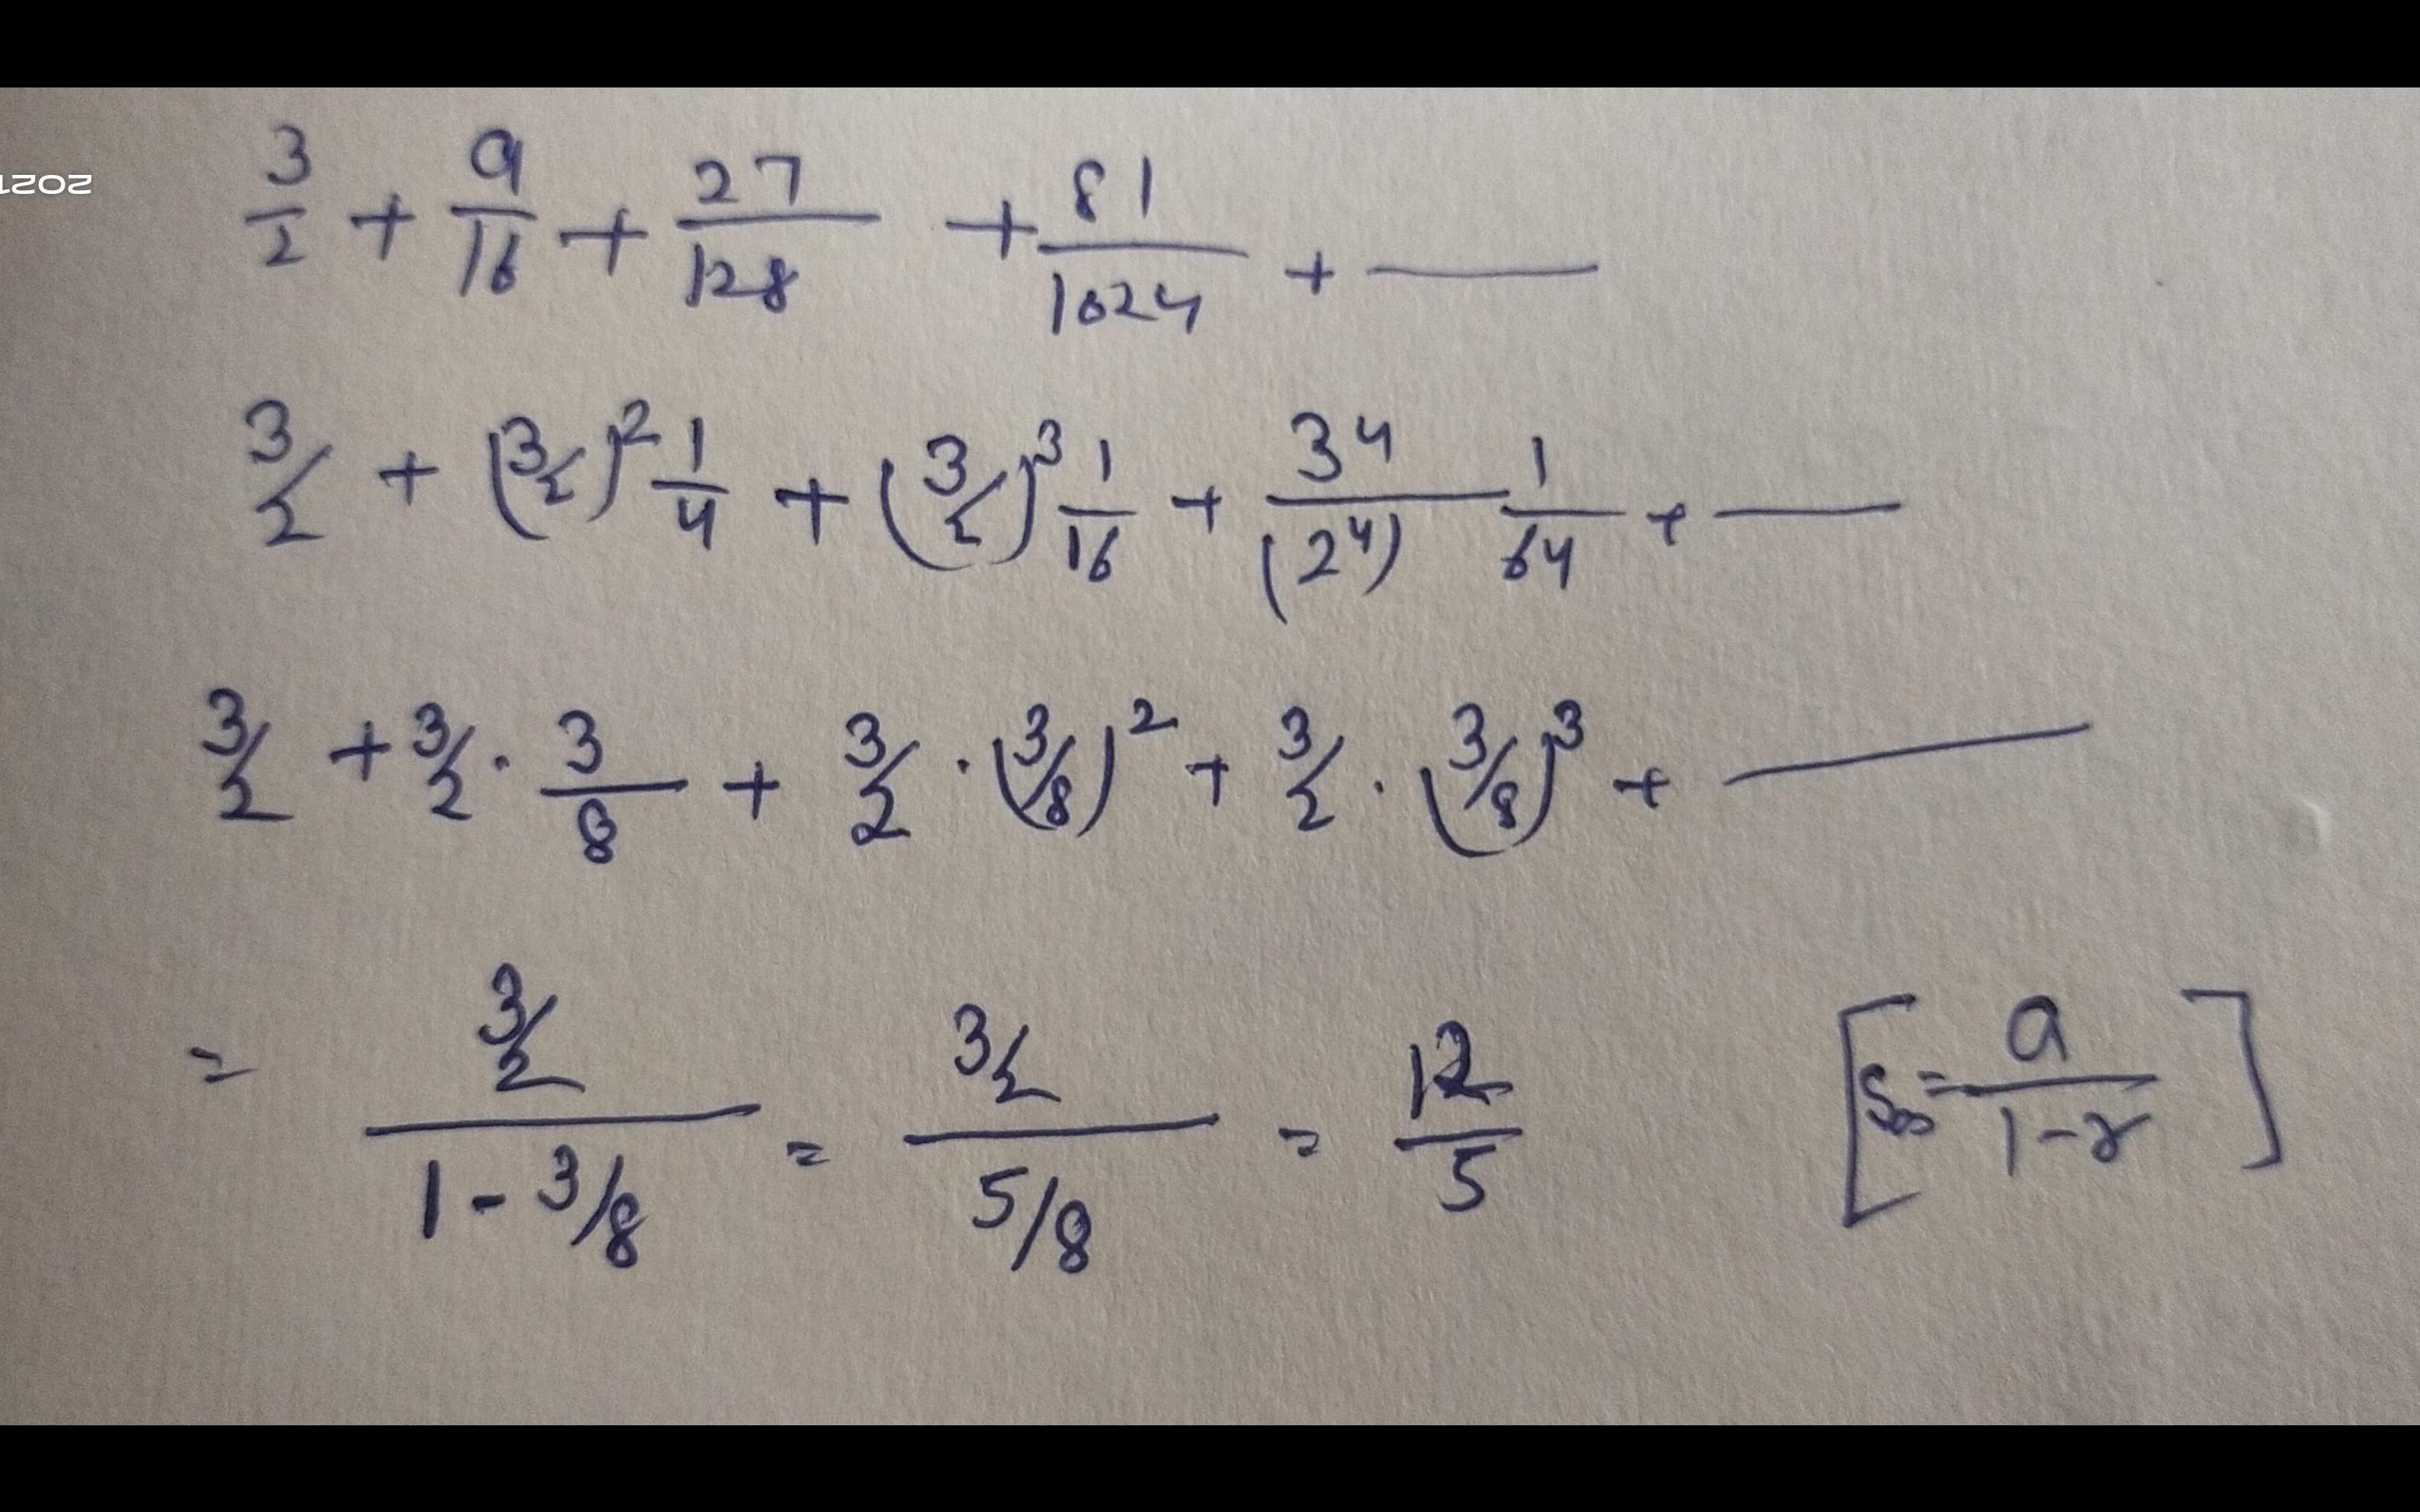 2021
3/2 + 9/16 + 27/128 + 81/1024 + ——
3/2 + (3/2)² 1/4 + (3/2)³ 1/16 + 3⁴/(2⁴) 1/64 + ——
3/2 + 3/2 · 3/8 + 3/2 · (3/8)² + 3/2 · (3/8)³ + ——
= (3/2)/(1 - 3/8) = (3/2)/(5/8) = 12/5 [S∞ = a/(1-r)]